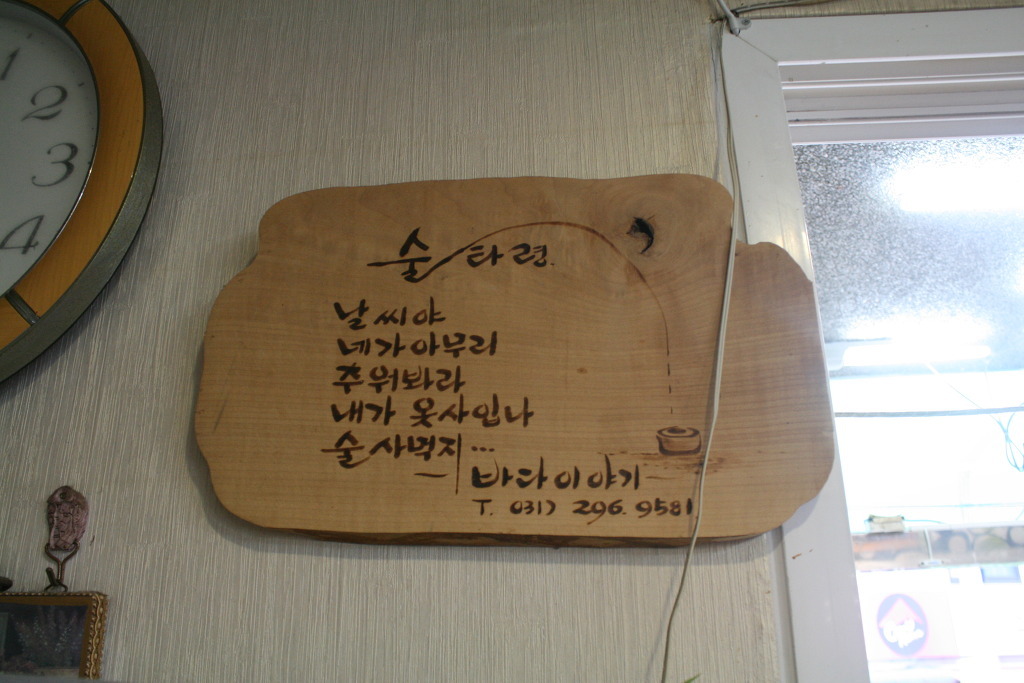 술타령.
날씨야
네가아무리
추워봐라
내가 옷사입나
술사먹지...
바다이야기
T. 031) 296. 9581
1
2
3
4